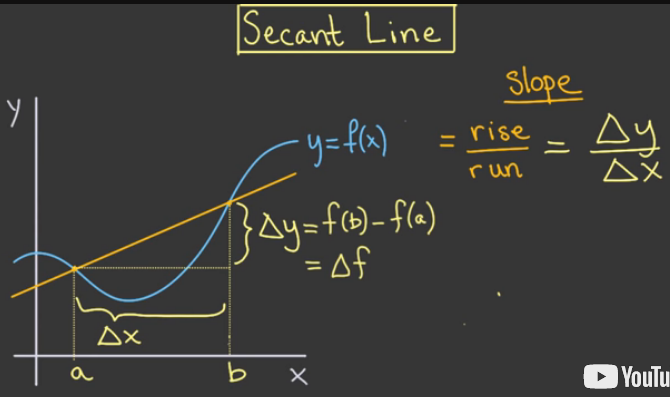 Secant Line
Slope
= rise/run = Δy/Δx
y
y=f(x)
Δy=f(b)-f(a)
=Δf
Δx
a
b
x
YouTu